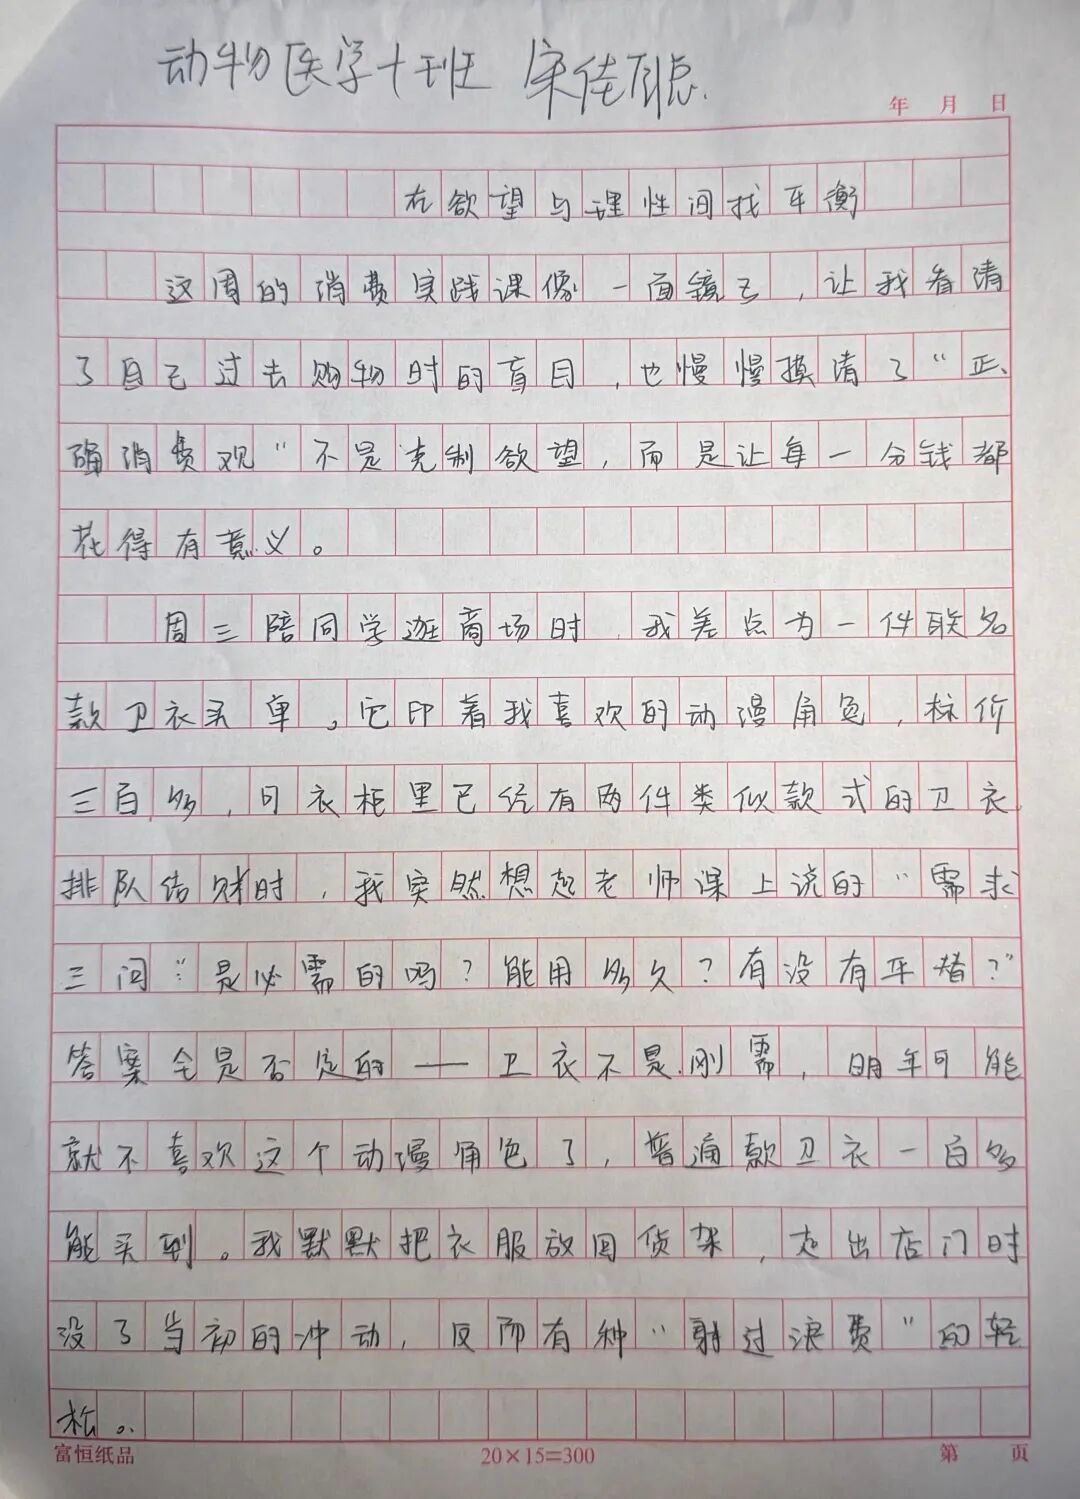 动物医学十班 宋佳聪
年 月 日
在欲望与理性间找平衡
这周的消费实践课像一面镜子，让我看清
了自己过去购物时的盲目，也慢慢摸清了“正
确消费观”不是克制欲望，而是让每一分钱都
花得有意义。
周三陪同学逛商场时，我差点为一件联名
款卫衣买单。它印着我喜欢的动漫角色，标价
三百多，可衣柜里已经有两件类似款式的卫衣
排队结账时，我突然想起老师课上说的“需求
三问”：是必需的吗？能用多久？有没有平替？”
答案全是否定的——卫衣不是刚需，明年可能
就不喜欢这个动漫角色了，普通款卫衣一百多
能买到。我默默把衣服放回货架，走出店门时
没了当初的冲动，反而有种“躲过浪费”的轻
松。
富恒纸品
20×15=300
第 页